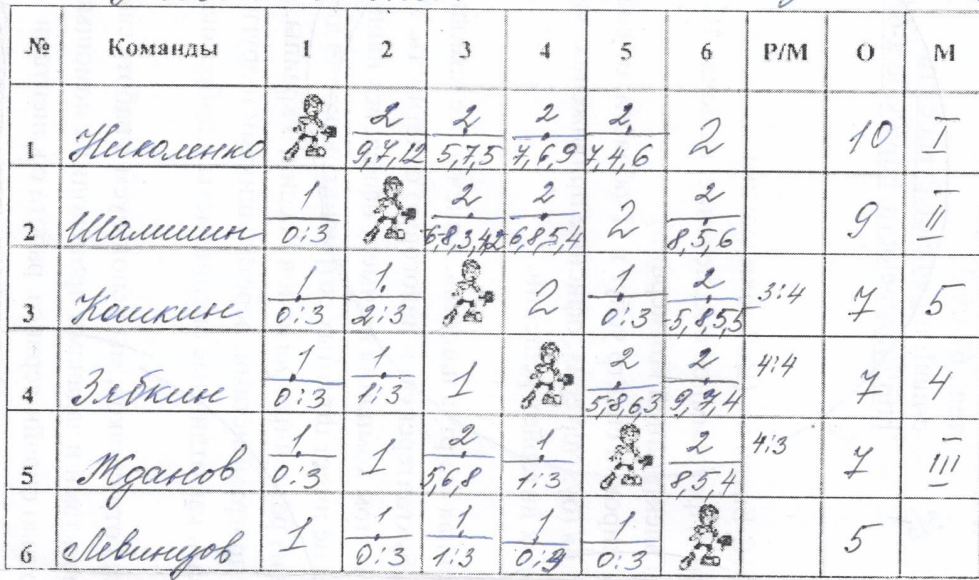 № Команды 1 2 3 4 5 6 Р/М О М
1 Николенко 2 9,7,12 2 5,7,5 2 7,6,9 2 7,4,6 2 10 I
2 Шалишин 1 0:3 2 6,-8,3,4,2 2 6,8,5,4 2 2 8,5,6 9 II
3 Кошкин 1 0:3 1 2:3 2 1 0:3 2 -5,8,5,5 3:4 7 5
4 Зябкин 1 0:3 1 1:3 1 2 5,8,6,3 2 9,7,4 4:4 7 4
5 Жданов 1 0:3 1 2 5,6,8 1 1:3 2 8,5,4 4:3 7 III
6 Левинцов 1 1 0:3 1 1:3 1 1 0:3 5